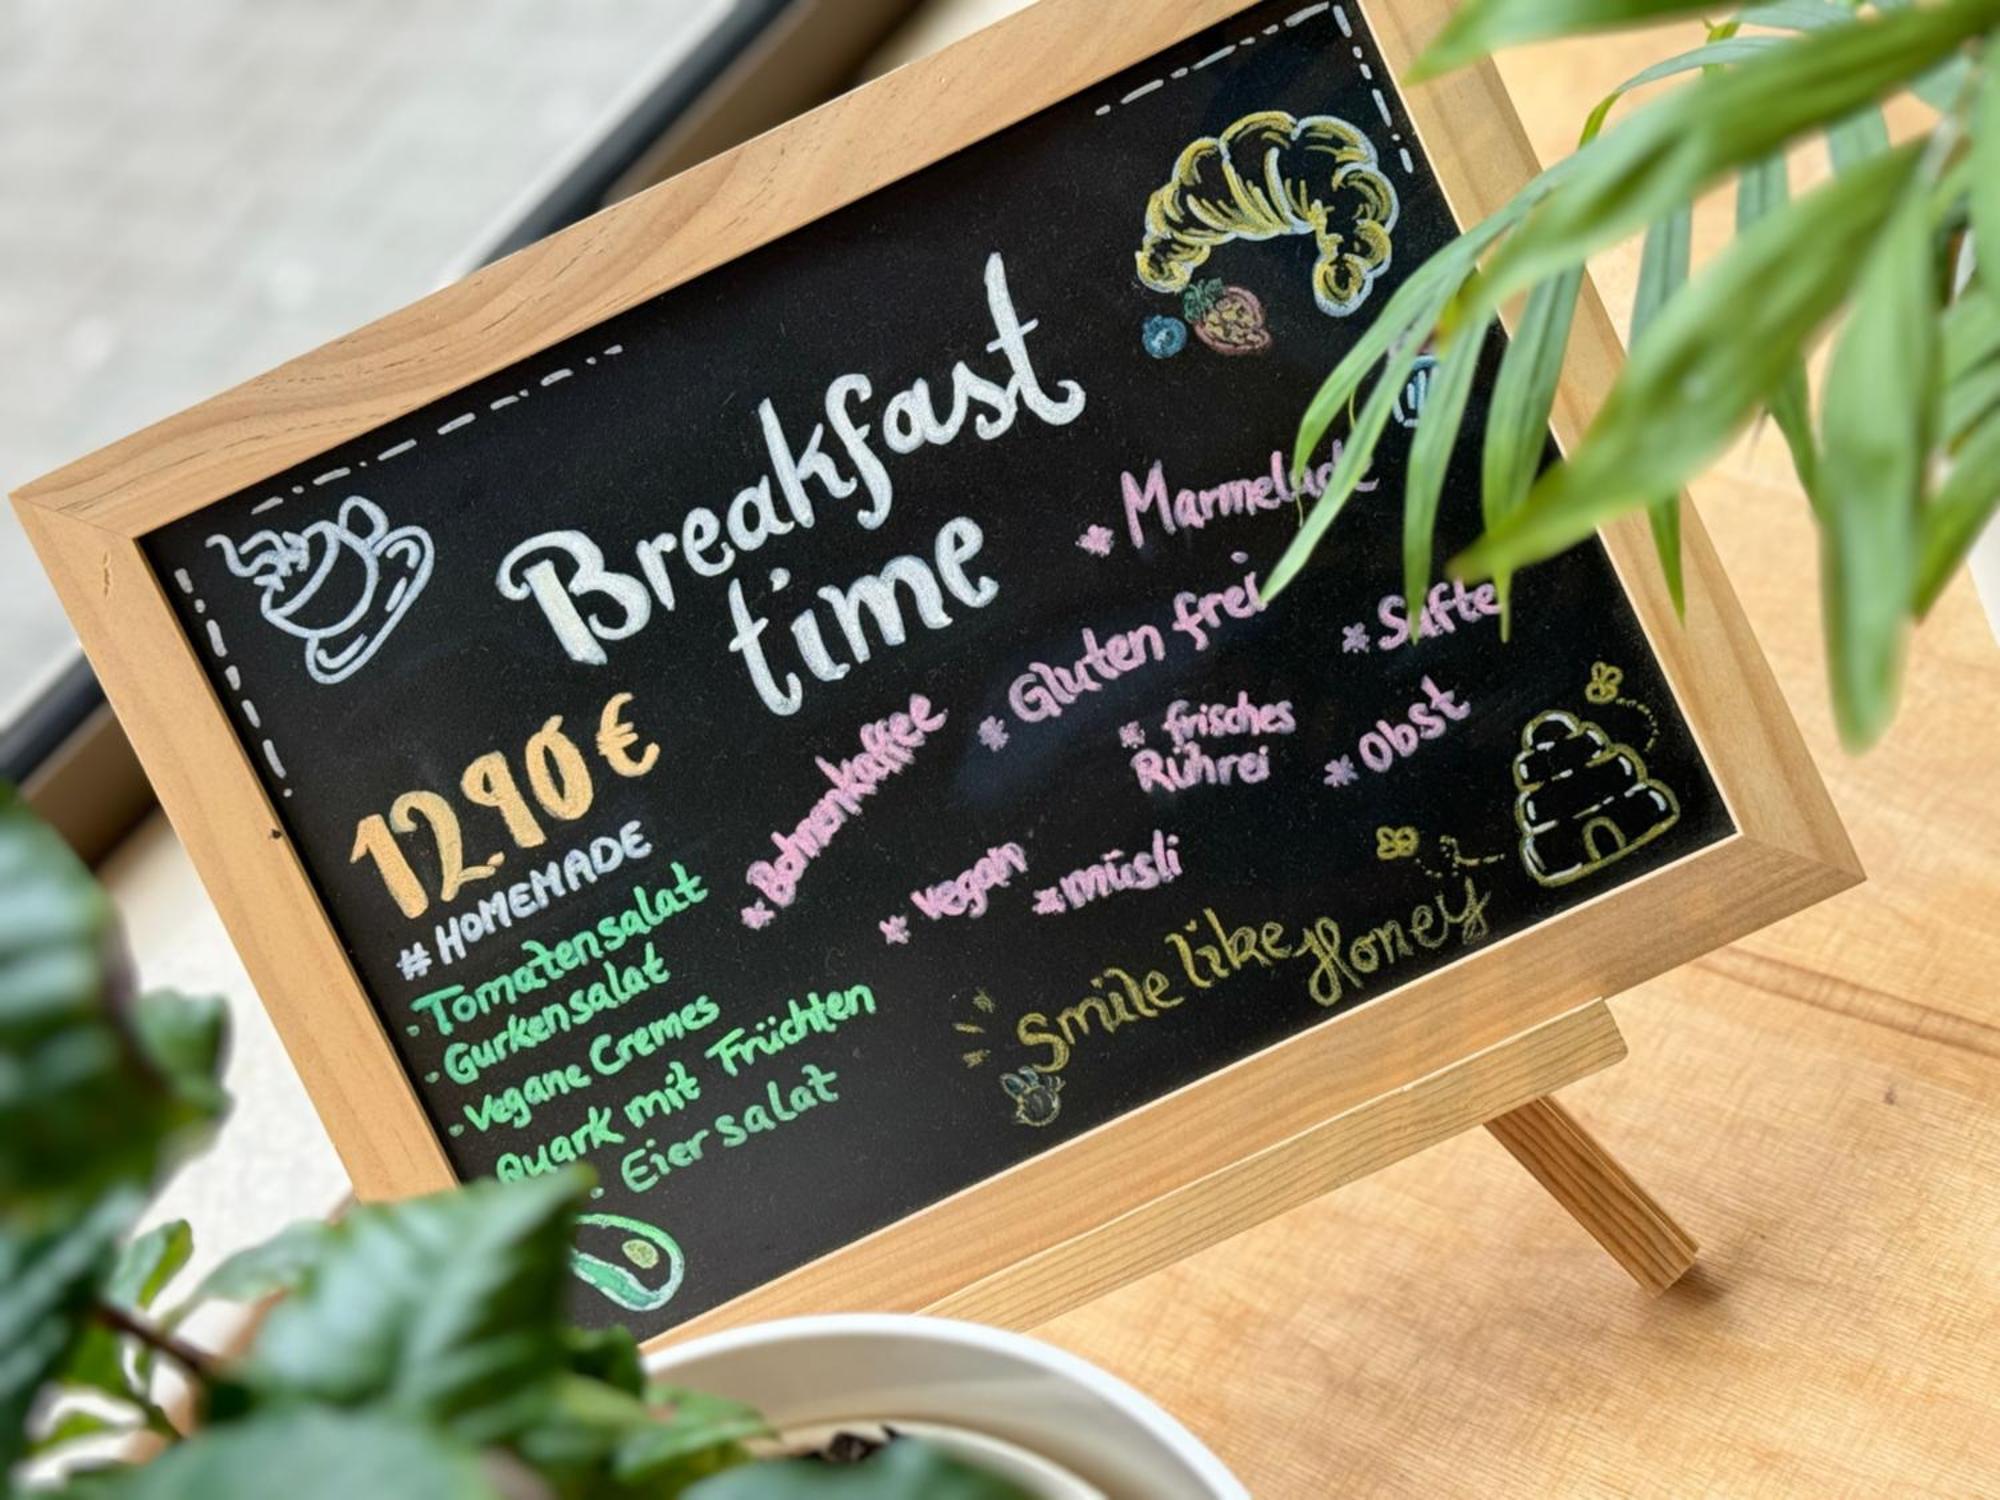 Breakfast
time
12.90€
#HOMEMADE
· Tomatensalat
· Gurkensalat
· Vegane Cremes
Quark mit Früchten
· Eiersalat
* Bohnenkaffee
* Marmelade
* Gluten frei
* Säfte
* frisches
Rührei
* Obst
* vegan
* müsli
Smile like Honey